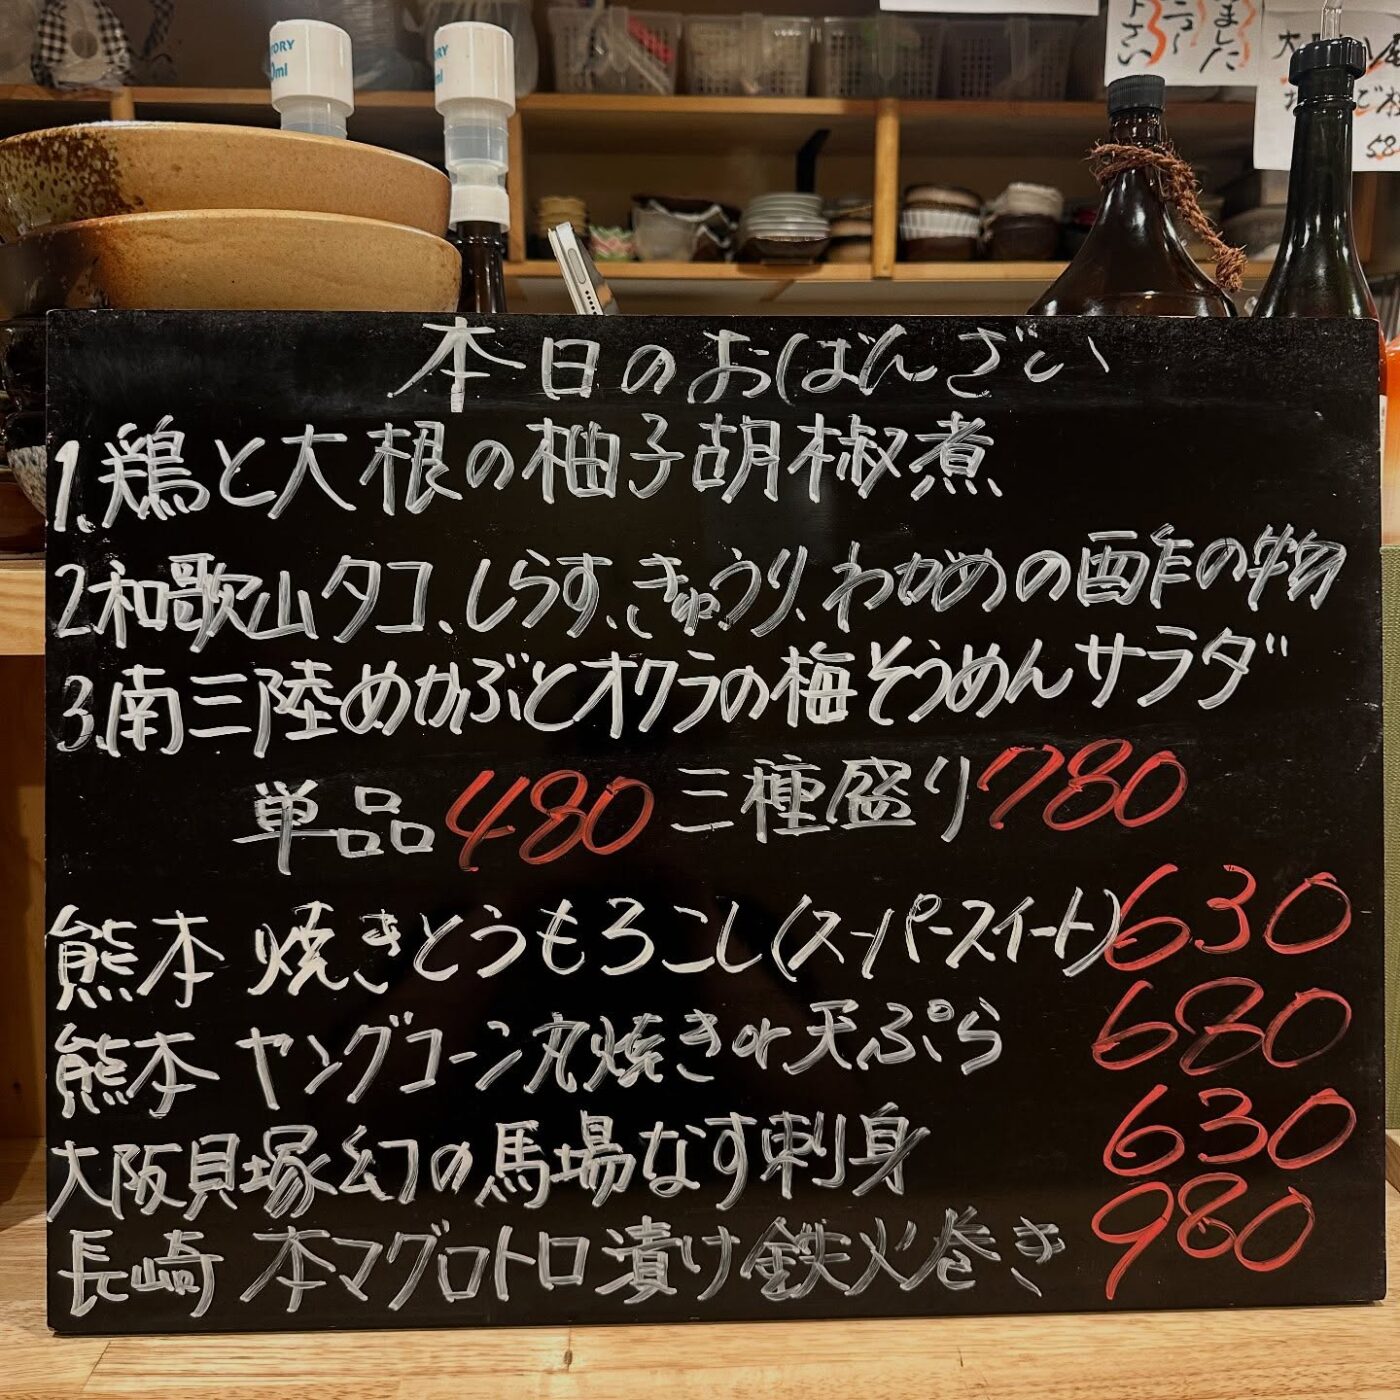 本日のおばんざい
1.鶏と大根の柚子胡椒煮
2和歌山タコ、しらす、きゅうり、わかめの酢の物
3.南三陸めかぶとオクラの梅そうめんサラダ
単品480 三種盛り780
熊本 焼きとうもろこし(スーパースイート)630
熊本 ヤングコーン丸焼きor天ぷら 680
大阪貝塚幻の馬場なす刺身 630
長崎 本マグロトロ漬け鉄火巻き 980